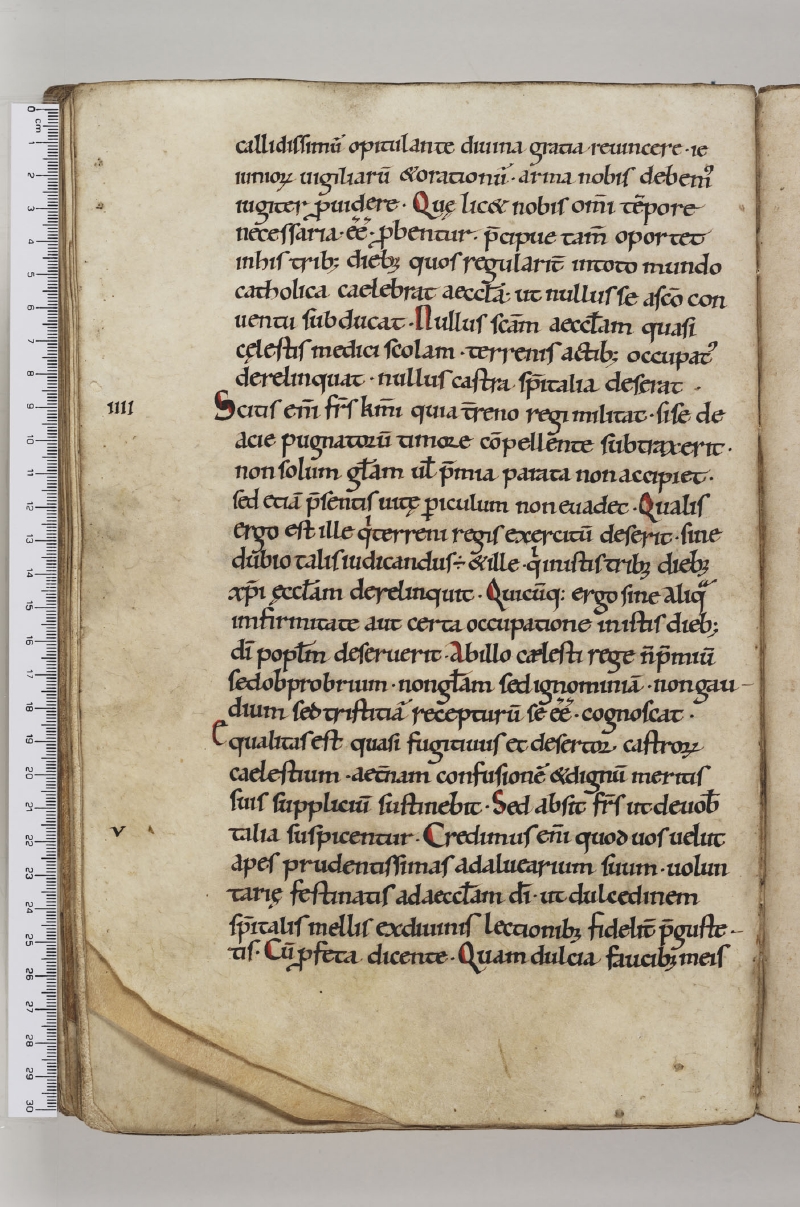 callidissimū opitulante diuina gratia reuincere · ie
iunioꝝ uigiliarū &orationū · arma nobis debemꝰ
iugiter ꝓuidere · Quę lic& nobis om̄i tēpore
necessaria · ēē · ꝓbentur · p̄cipue tam̄ oportet
inhis trib; dieb; quos regularit̄ intoto mundo
catholica caelebrat aeccła · ut nullus se asc̄o con
uentu subducat · Nullus sc̄am aeccłam quasi
cęlestis medici scolam · terrenis actib; occupatꝰ
derelinquat · nullus castra sp̄italia deserat ·
IIII Scitis em̄ fr̄s km̄i quia t̄reno regi militat · si se de
acie pugnatorū timore cōpellente subtraxerit ·
non solum głam uł p̄mia parata non accipiet ·
sed etiā p̄sentis uitę ꝑiculum non euadet · Qualis
ergo est ille qͥ terreni regis exercitū deserit · sine
dubio talis iudicandus ÷ &ille · qͥ inistis trib; dieb;
xp̄i ęccłam derelinquit · Quicūq: ergo sine aliqᵃ
infirmitate aut certa occupatione inistis dieb;
dī popłm deseruerit · Ab illo cælesti rege n̄ p̄miū
sed obprobrium · non głam sed ignominiā · non gau-
dium sed tristitiā recepturū se ēē · cognoscat ·
Equalitas est quasi fugitiuus et desertor castroꝝ
caelestium · aet̄nam confusionē &dignū meritis
suis suppliciū sustinebit · Sed absit fr̄s ut deuob̄
V talia suspicentur · Credimus em̄ quod uos uelut
apes prudentissimas adaluearium suum · uolun
tarię festinatis adaeccłam dī · ut dulcedinem
sp̄italis mellis exdiuinis lectionib; fidelit̄ p̄guste-
tis · Cū ꝓfeta dicente · Quam dulcia faucib; meis